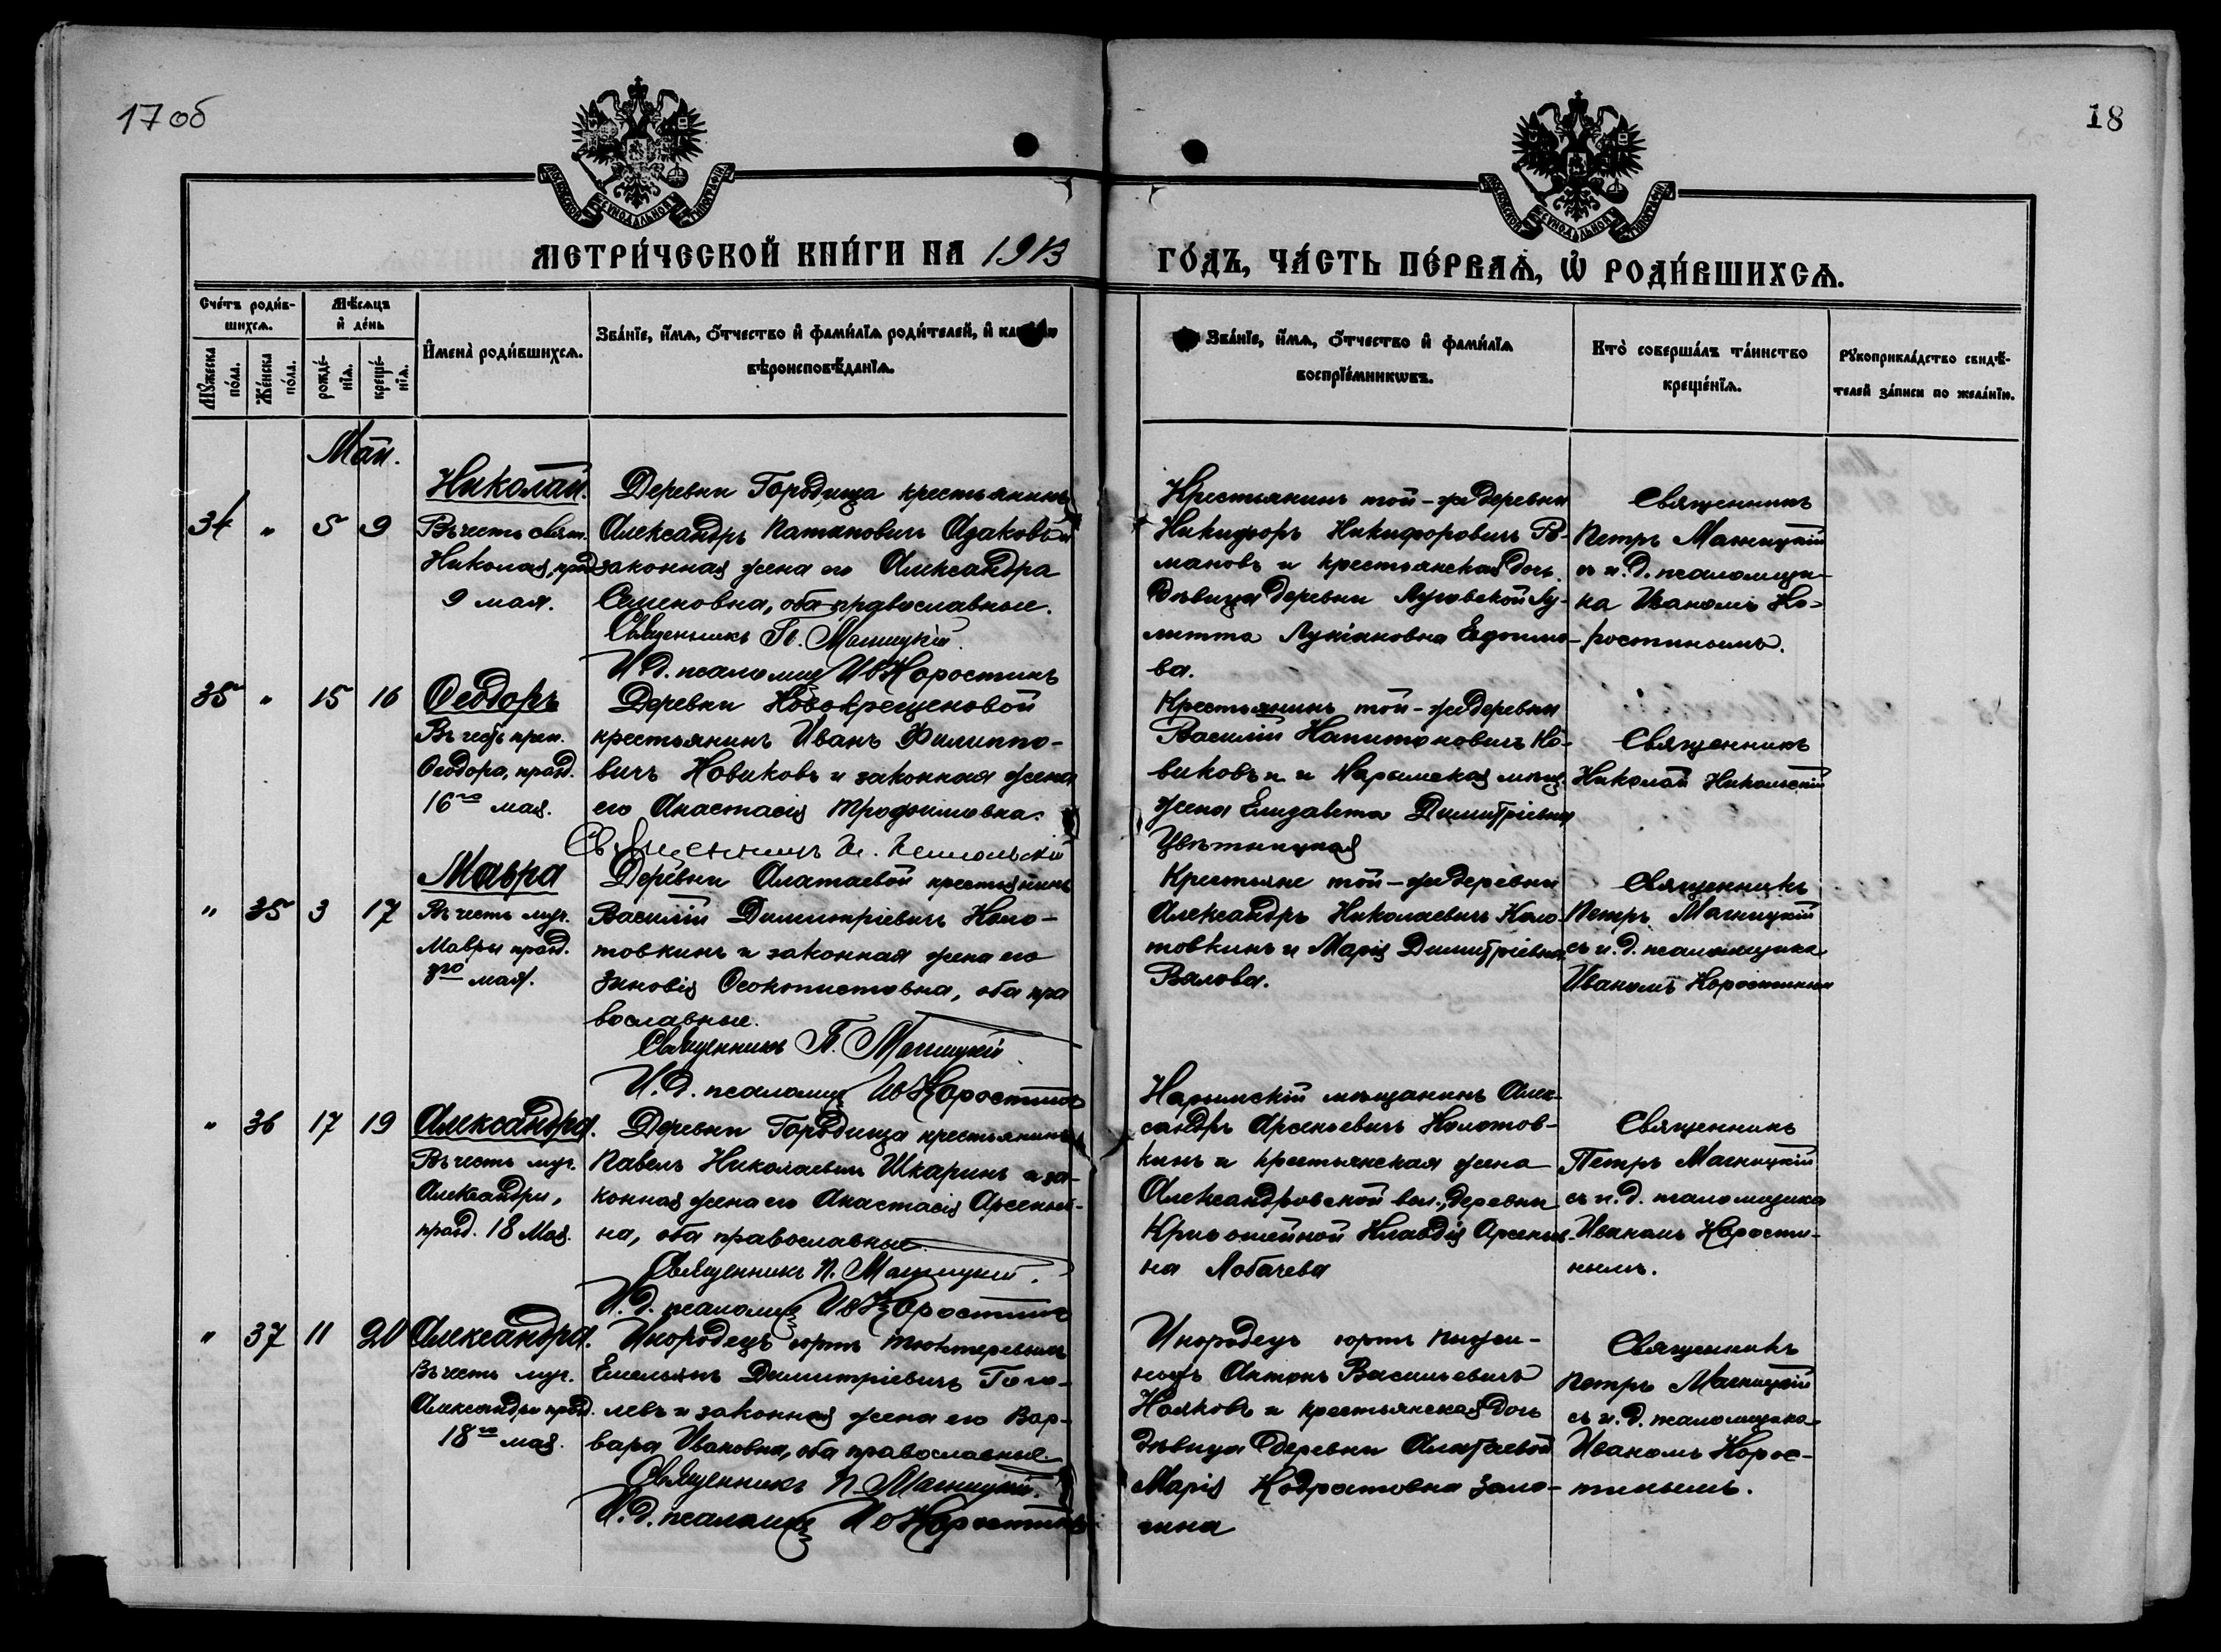 17 об
18
МОСКОВСКОЙ СѴНОДАЛЬНОЙ ТИПОГРАФІИ
МОСКОВСКОЙ СѴНОДАЛЬНОЙ ТИПОГРАФІИ
МЕТРИ́ЧЕСКОЙ КНИ́ГИ НА 1913
ГО́ДЪ, ЧА́СТЬ ПЕ́РВАѦ, Ѡ҆ РОДИ́ВШИХСѦ.
Сче́тъ роди́в-
шихсѧ.
Мꙋ́жеска
по́ла.
Же́нска
по́ла.
Мѣ́сѧцъ
и҆ де́нь
рожде́-
нїѧ.
креще́-
нїѧ.
И҆мена̀ роди́вшихсѧ.
Зва́нїе, и҆́мѧ, ѻ҆́тчество и҆ фами́лїѧ роди́телей, и҆
вѣроисповѣ́данїѧ.
Зва́нїе, и҆́мѧ, ѻ҆́тчество и҆ фами́лїѧ
воспрїе́мникѡвъ.
Кто̀ соверша́лъ та́инство
креще́нїѧ.
Рꙋкоприкла́дство свидѣ́-
телей за́писи по жела́нїю.
Май.
34 " 5 9
Николай.
Въ честь свят.
Николая, празд.
9 мая.
Деревни Городища крестьянинъ
Александръ Адаковъ и
законная жена его Александра
Семеновна, оба православные.
Священникъ П. Магницкій.
И. д. псаломщ. Ив Коростинъ
Крестьянинъ той-же деревни
Никифоръ Никифоровичъ Ро-
мановъ и крестьянская дочь
дѣвица деревни Луговской Іу-
литта Лукіановна Евдокимо-
ва.
Священникъ
Петръ Магницкій
съ и. д. псаломщи-
ка Иваномъ Ко-
ростинымъ.
35 " 15 16
Ѳеодоръ
Въ честь преп.
Ѳеодора, празд.
16го мая.
Деревни Новокрещеновой
крестьянинъ Иванъ Филиппо-
вичъ Новиковъ и законная жена
его Анастасія Трофимовна.
Священникъ Н. Никольскій
Крестьянинъ той-же деревни
Василій Капитоновичъ Но-
виковъ и Нарымская мѣщ.
жена Елизавета Димитріевна
Цвѣтницкая
Священникъ
Николай Никольскій
" 35 3 17
Мавра
Въ честь муч.
Мавры празд.
3го мая.
Деревни Алатаевой крестьянинъ
Василій Димитріевичъ Коло-
товкинъ и законная жена его
Зиновія Ѳеоктистовна, оба пра
вославные.
Священникъ П. Магницкій
И. д. псаломщ. Ив Коростинъ
Крестьяне той-же деревни
Александръ Николаевичъ Коло-
товкинъ и Марія Димитріевна
Вялова.
Священникъ
Петръ Магницкій
съ и. д. псаломщика
Иваномъ Коростинымъ
" 36 17 19
Александра.
Въ честь муч.
Александры,
празд. 18 Мая.
Деревни Городища крестьянинъ
Павелъ Николаевичъ Шкаринъ и за-
конная жена его Анастасія Арсеньев-
на, оба православные.
Священникъ П. Магницкій.
И. д. псаломщ. Ив Коростинъ
Нарымскій мѣщанинъ Алек-
сандръ Арсеньевичъ Колотов-
кинъ и крестьянская жена
Александровской вол., деревни
Клавдія Арсеньев-
на Лобачева
Священникъ
Петръ Магницкій
съ и. д. псаломщика
Иваномъ Корости-
нымъ.
" 37 11 20
Александра.
Въ честь муч.
Александры празд.
18го мая.
Инородецъ юртъ Тюктеревыхъ
Емельянъ Димитріевичъ Гого-
левъ и законная жена его Вар-
вара Ивановна, оба православные.
Священникъ П. Магницкій.
И. д. псаломщ. Ив Коростинъ
Инородецъ юртъ
Антонъ Васильевичъ
и крестьянская дочь
дѣвица деревни Алатаевой
Марія Кодратовна Зало-
гина
Священникъ
Петръ Магницкій
съ и. д. псаломщика
Иваномъ Корос-
тинымъ.